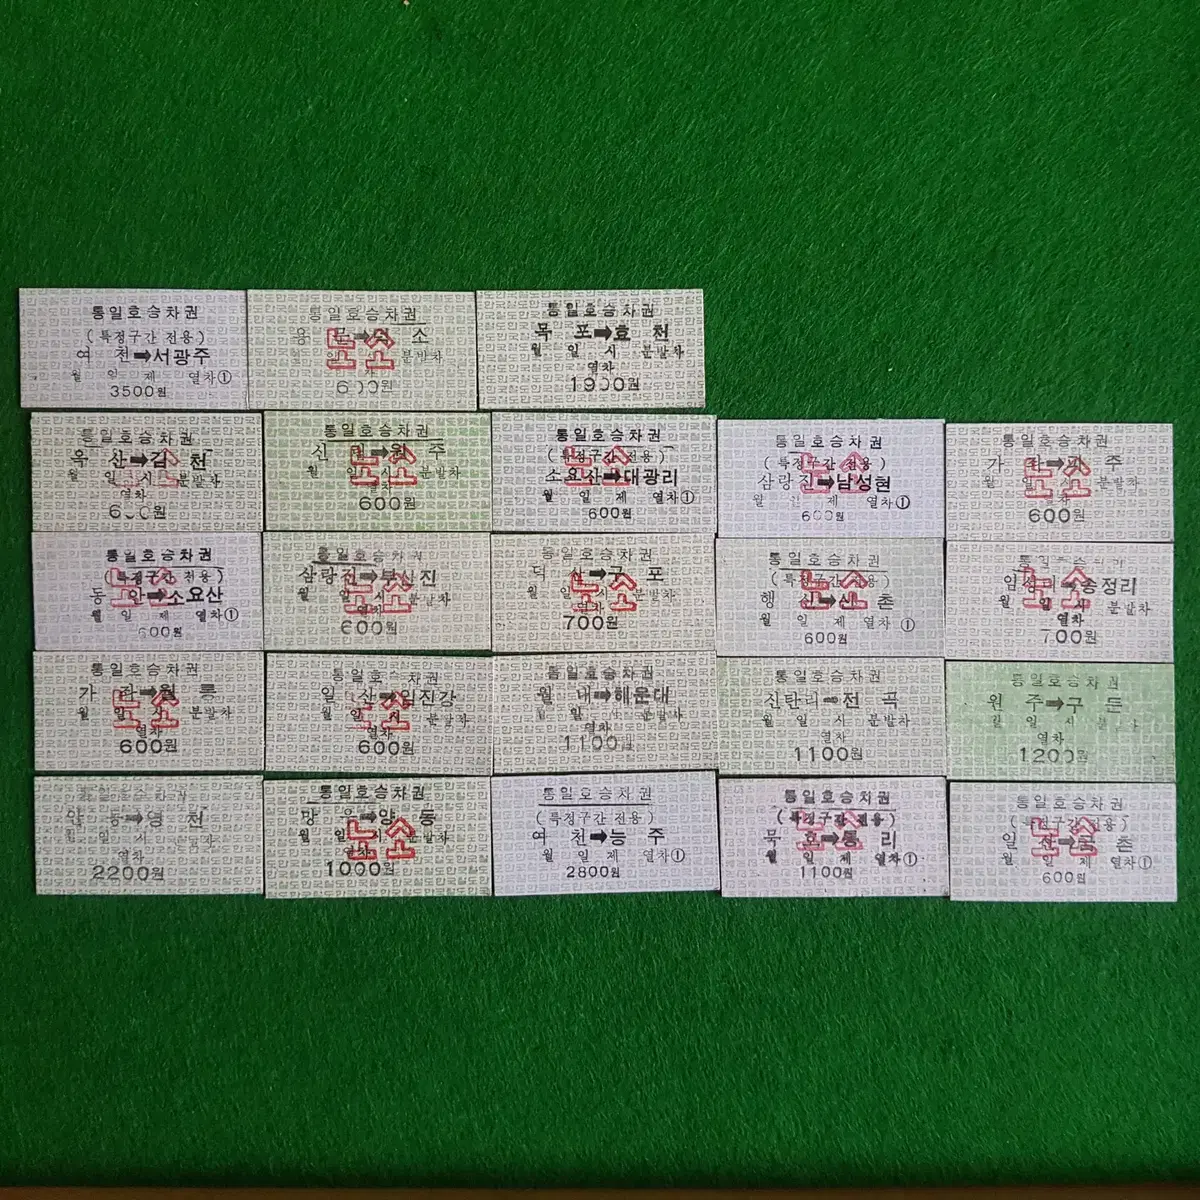 통일호승차권
(특정구간 전용)
여 천➡서광주
월 일 제 열차①
3500원
통일호승차권
노소
월 일 시 분발차
600원
통일호승차권
목 포➡효 천
월 일 시 분발차
열차
1900원
통일호승차권
옥 산➡김 천
노소
월 일 시 분발차
열차
600원
통일호승차권
원 주
노소
월 일 시 분발차
600원
통일호승차권
(특정구간 전용)
소요산➡대광리
노소
월 일 제 열차①
600원
통일호승차권
(특정구간 전용)
삼랑진➡남성현
노소
월 일 제 열차①
600원
통일호승차권
노소
월 일 시 분발차
열차
600원
통일호승차권
(특정구간 전용)
동 안➡소요산
노소
월 일 제 열차①
600원
통일호승차권
삼랑진➡부산진
노소
월 일 시 분발차
열차
600원
통일호승차권
덕 산➡구 포
노소
월 일 시 분발차
열차
700원
통일호승차권
(특정구간 전용)
행 신➡신 촌
노소
월 일 제 열차①
600원
통일호승차권
임성리➡송정리
노소
월 일 시 분발차
열차
700원
통일호승차권
가 좌➡원 릉
노소
월 일 시 분발차
열차
600원
통일호승차권
일 산➡임진강
노소
월 일 시 분발차
열차
600원
통일호승차권
월 내➡해운대
월 일 시 분발차
열차
1100원
통일호승차권
신탄리➡전 곡
월 일 시 분발차
열차
1100원
통일호승차권
원 주➡구 둔
월 일 시 분발차
열차
1200원
통일호승차권
안 동➡영 천
월 일 시 분발차
열차
2200원
통일호승차권
망 우➡양 동
노소
월 일 시 분발차
열차
1000원
통일호승차권
(특정구간 전용)
여 천➡능 주
월 일 제 열차①
2800원
통일호승차권
(특정구간 전용)
묵 호➡통 리
노소
월 일 제 열차①
1100원
통일호승차권
(특정구간 전용)
일 산➡신 촌
노소
월 일 제 열차①
600원